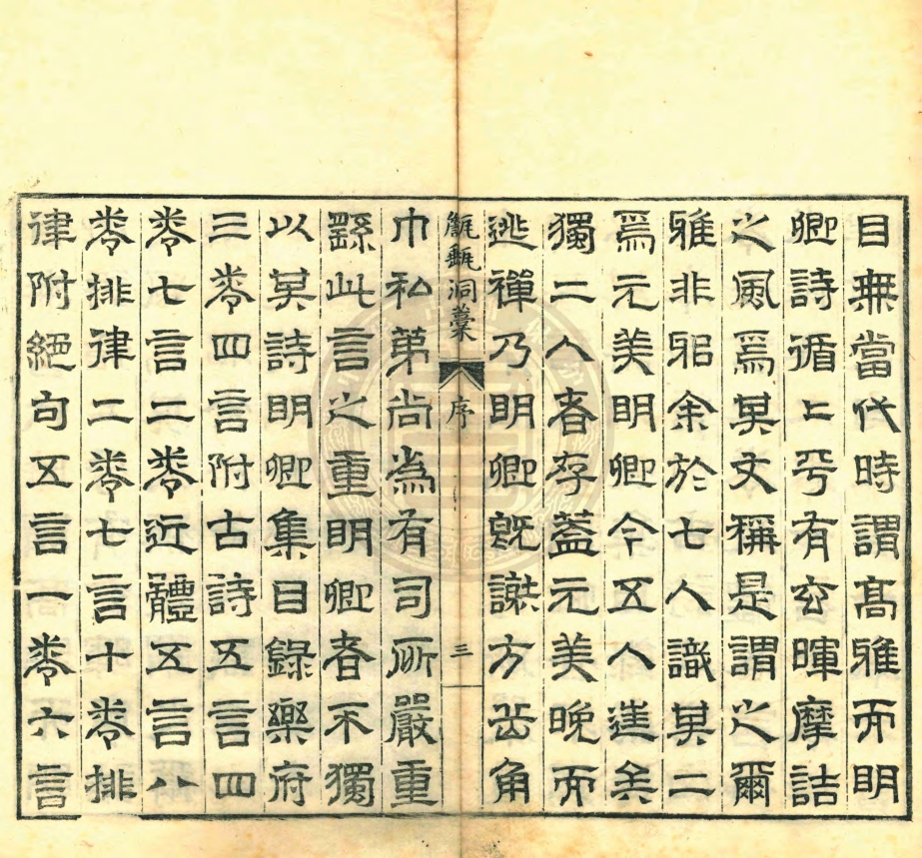 目無當代時謂高雅而明
卿詩循〻乎有玄暉摩詰
之風焉其文稱是謂之爾
雅非邪余於七人識其二
焉元美明卿今五人進矣
獨二人者存蓋元美晚而
逃禪乃明卿旣謝方岳角
甔甀洞藁 序 三
巾私第尚為有司所嚴重
繇此言之重明卿者不獨
以其詩明卿集目錄樂府
三卷四言附古詩五言四
卷七言二卷近體五言八
卷排律二卷七言十卷排
律附絕句五言一卷六言